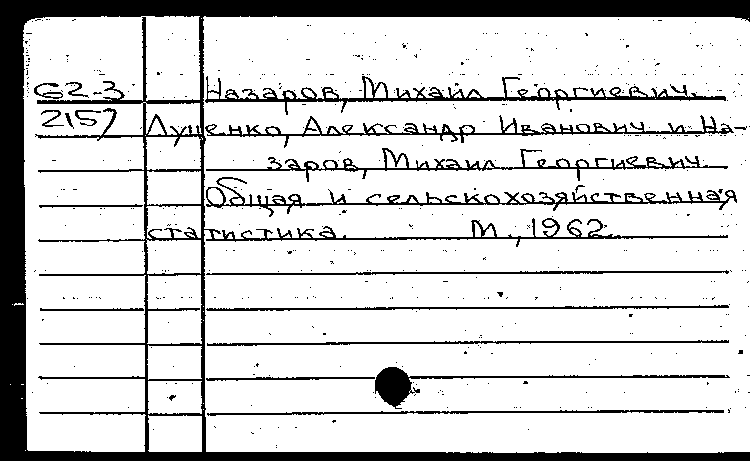 62-3 Назаров, Михаил Георгиевич.
2157 Лущенко, Александр Иванович и На-
заров, Михаил Георгиевич
Общая и сельскохозяйственная
статистика. М., 1962.